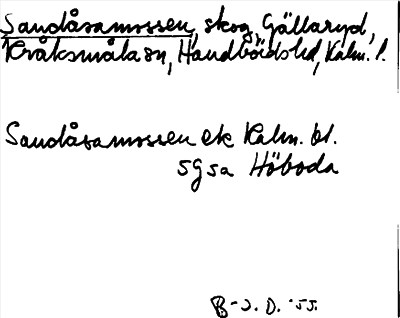 Sandåsamossen, skog, Gällaryd,
Kråksmåla sn, Handbörds hd, Kalm. l.
Sandåsamossen ek Kalm. bl.
5g5a Höboda
B-J. D. -55.